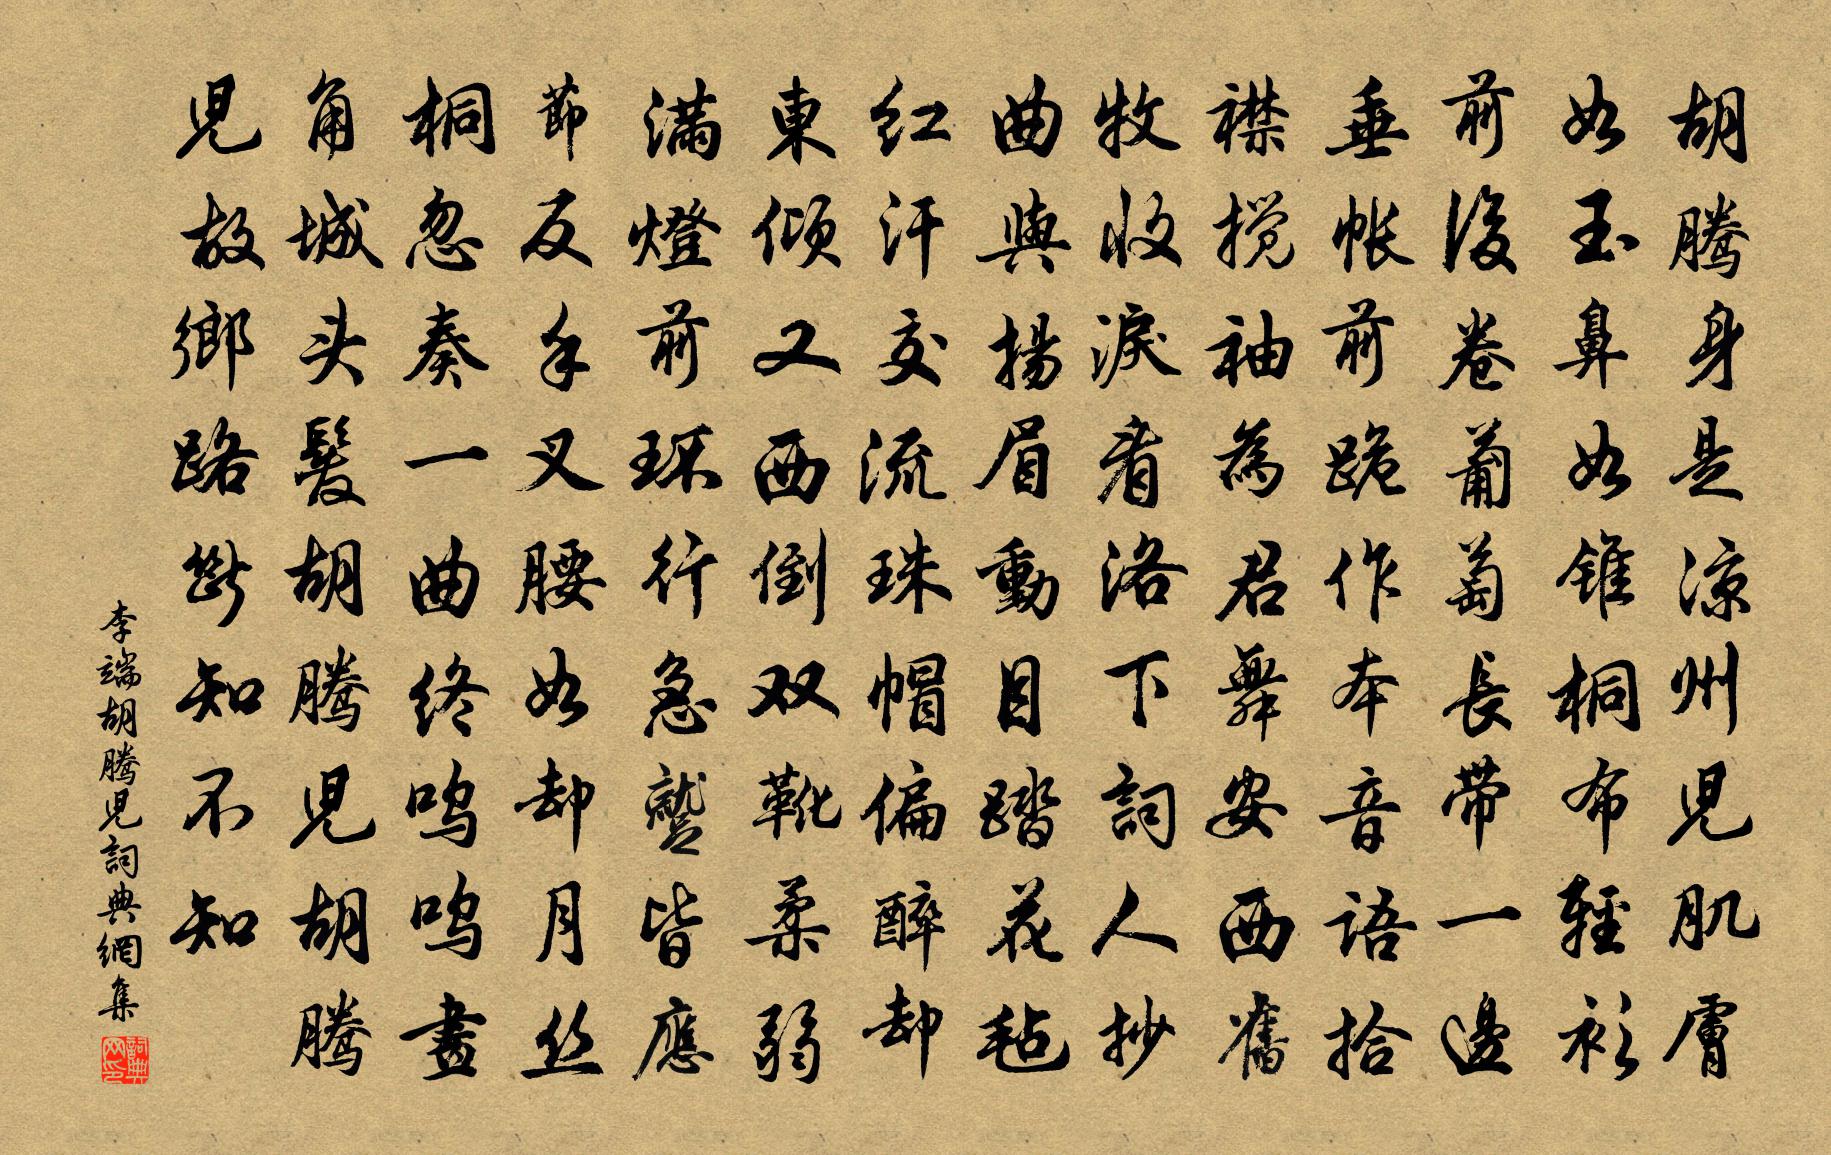 胡腾身是凉州兒肌膚
如玉鼻如锥桐布輕衫
前後卷葡萄長带一邊
垂帐前跪作本音語拾
襟搅袖為君舞安西舊
牧收淚看洛下詞人抄
曲與揚眉動目踏花毡
红汗交流珠帽偏醉却
東倾又西倒双靴柔弱
满燈前环行急蹵皆應
節反手叉腰如却月丝
桐忽奏一曲终嗚嗚畫
角城头髮胡腾兒胡腾
兒故鄉路断知不知
李端胡腾兒詞典網集
詞典网印